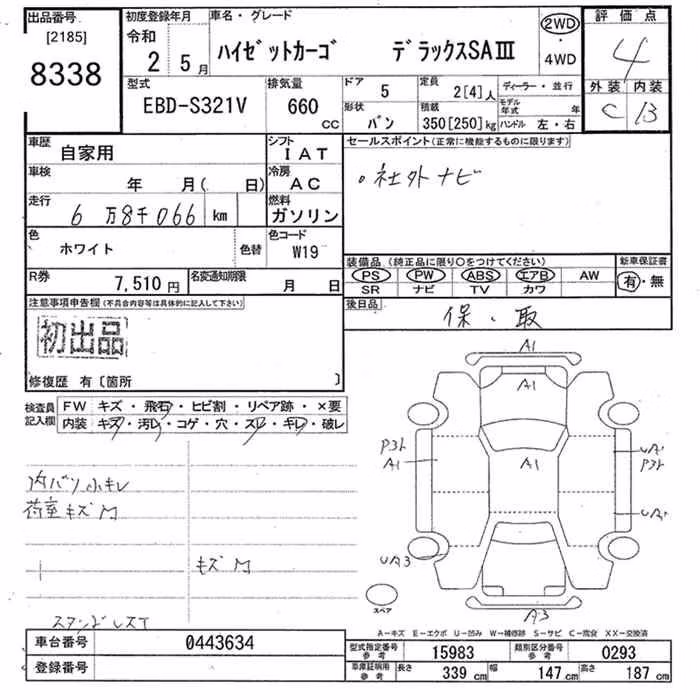 出品番号
[2185]
8338
初度登録年月
令和
2 5月
車名・グレード
ハイゼットカーゴ デラックスSAⅢ
2WD
・
4WD
評価点
4
外装 内装
C B
型式
EBD-S321V
排気量
660
cc
ドア
5
定員
2[4]人
形状
バン
積載
350[250]kg
ディーラー・並行
モデル年式 年
ハンドル 左・右
車歴
自家用
シフト
IAT
車検
年 月( 日)
冷房
AC
走行
6万8千066 km
燃料
ガソリン
色
ホワイト
色替
色コード
W19
R券
7,510円
名変通知期限
月 日
セールスポイント(正常に機能するものに限ります)
。社外ナビ
装備品(純正品に限り○をつけてください)
PS PW ABS エアB AW
SR ナビ TV カワ
新車保証書
有・無
後日品
保・取
注意事項申告欄(不具合内容等は具体的に記入して下さい)
初出品
修復歴 有〔箇所 〕
検査員
記入欄
FW キズ・飛石・ヒビ割・リペア跡・×要
内装 キズ・汚レ・コゲ・穴・スレ・キレ・破レ
内バリ小キレ
荷室キズM
キズM
スタンドレスT
A1
A1
A1
P31
A1
UA1
P31
UA1
UA3
A3
スペア
A-キズ E-エクボ U-凹み W-補修跡 S-サビ C-腐食 XX-交換済
車台番号
0443634
登録番号
型式指定番号
参考
15983
類別区分番号
参考
0293
車庫証明用
参考
長さ 339cm 幅 147cm 高さ 187cm